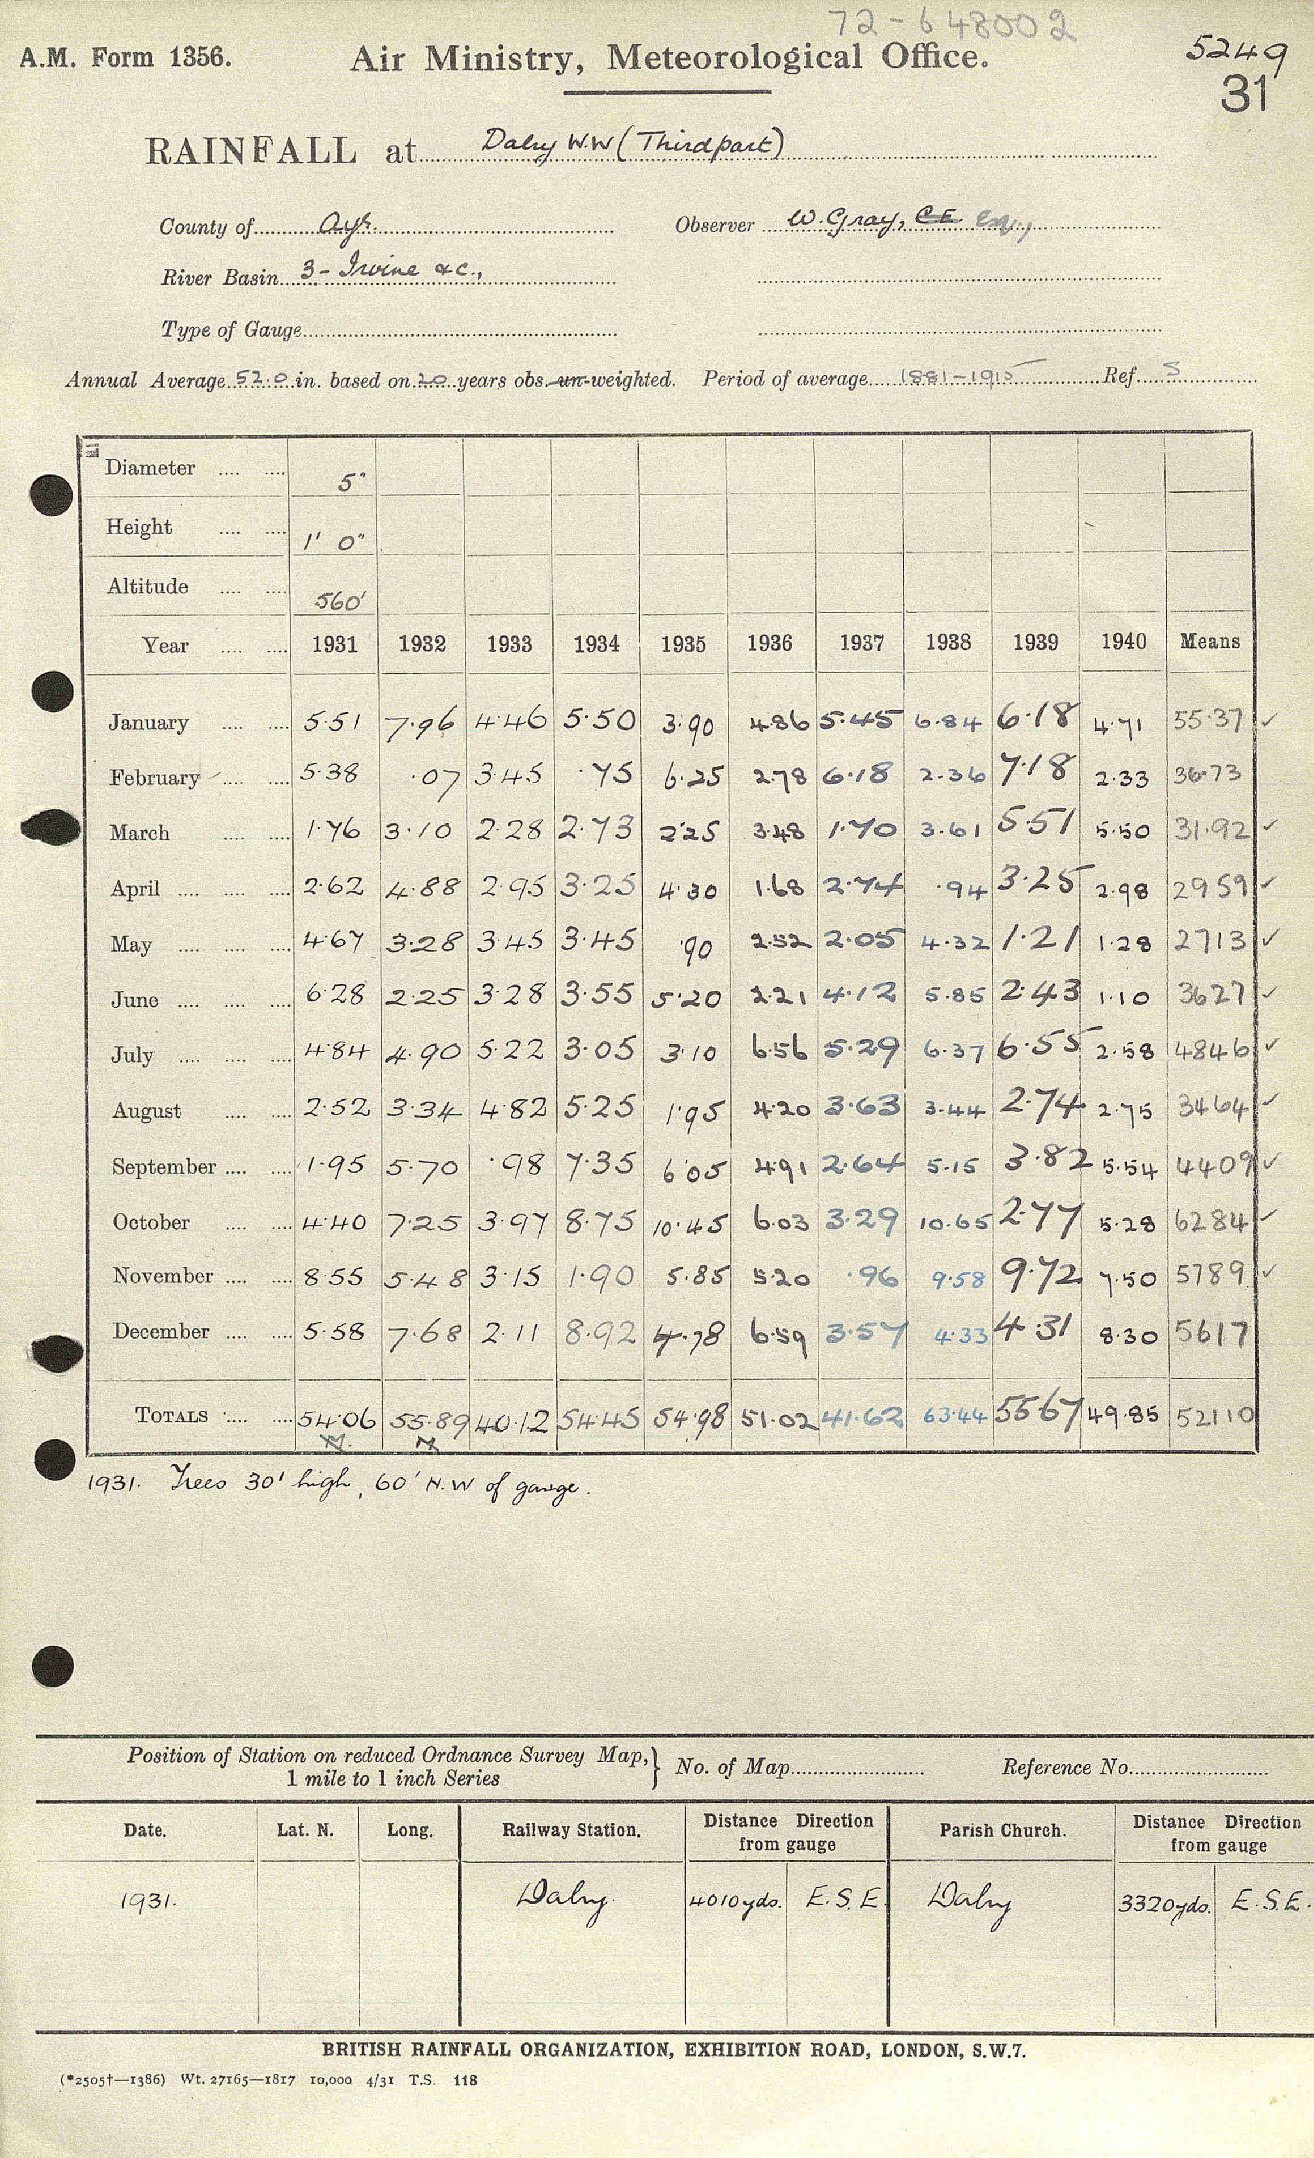 72-648002
A.M. Form 1356. Air Ministry, Meteorological Office. 5249
31
RAINFALL at Dalry W.W (Thirdpart)
County of Ayr. Observer W. Gray, C.E. Esq,
River Basin 3 - Irvine &c.,
Type of Gauge
Annual Average 52.0 in. based on 20 years obs. un-weighted. Period of average 1881-1915 Ref. S
Diameter 5"
Height 1' 0"
Altitude 560'
Year 1931 1932 1933 1934 1935 1936 1937 1938 1939 1940 Means
January 5.51 7.96 4.46 5.50 3.90 4.86 5.45 6.84 6.18 4.71 55.37 ✓
February 5.38 .07 3.45 .75 6.25 2.78 6.18 2.36 7.18 2.33 36.73
March 1.76 3.10 2.28 2.73 2.25 3.48 1.70 3.61 5.51 5.50 31.92 ✓
April 2.62 4.88 2.95 3.25 4.30 1.68 2.74 .94 3.25 2.98 29 59 ✓
May 4.67 3.28 3.45 3.45 .90 2.52 2.05 4.32 1.21 1.28 27 13 ✓
June 6.28 2.25 3.28 3.55 5.20 2.21 4.12 5.85 2.43 1.10 36 27 ✓
July 4.84 4.90 5.22 3.05 3.10 6.56 5.29 6.37 6.55 2.58 48 46 ✓
August 2.52 3.34 4.82 5.25 1.95 4.20 3.63 3.44 2.74 2.75 34 64 ✓
September 1.95 5.70 .98 7.35 6.05 4.91 2.64 5.15 3.82 5.54 44 09 ✓
October 4.40 7.25 3.97 8.75 10.45 6.03 3.29 10.65 2.77 5.28 62 84 ✓
November 8.55 5.48 3.15 1.90 5.85 5.20 .96 9.58 9.72 7.50 57 89 ✓
December 5.58 7.68 2.11 8.92 4.78 6.59 3.57 4.33 4.31 8.30 56 17
TOTALS 54.06 55.89 40.12 54.45 54.98 51.02 41.62 63.44 55 67 49.85 521 10
1931. Trees 30' high, 60' N.W of gauge.
Position of Station on reduced Ordnance Survey Map, 1 mile to 1 inch Series } No. of Map Reference No.
Date. Lat. N. Long. Railway Station. Distance Direction from gauge Parish Church. Distance Direction from gauge
1931. Dalry 4010 yds. E.S.E. Dalry 3320 yds. E.S.E.
BRITISH RAINFALL ORGANIZATION, EXHIBITION ROAD, LONDON, S.W.7.
(*2505†—1386) Wt. 27165—1817 10,000 4/31 T.S. 118